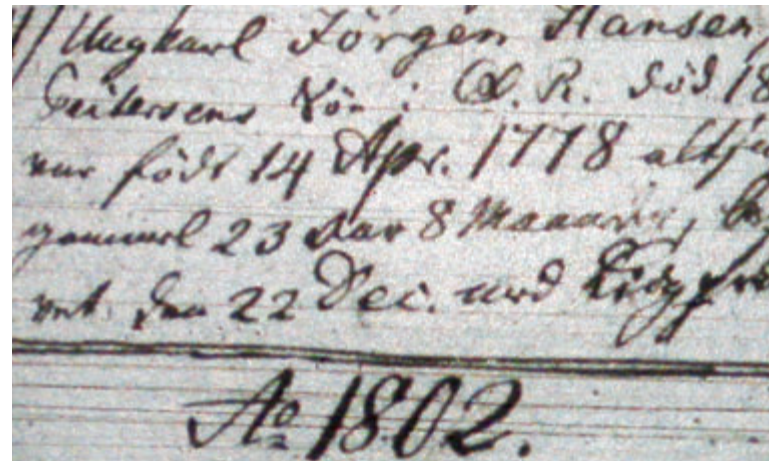 Ungkarl Jörgen Hansen,
Søn i Gl. R. död 18
var födt 14 Apr. 1778 altsaa
gammel 23 Aar 8 Maaneder, beg
vet den 22 Dec. med
Ao 1802.